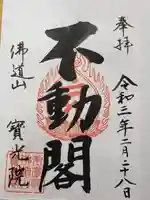 奉拝
令和三年二月二十八日
不動閣
佛道山
寶光院